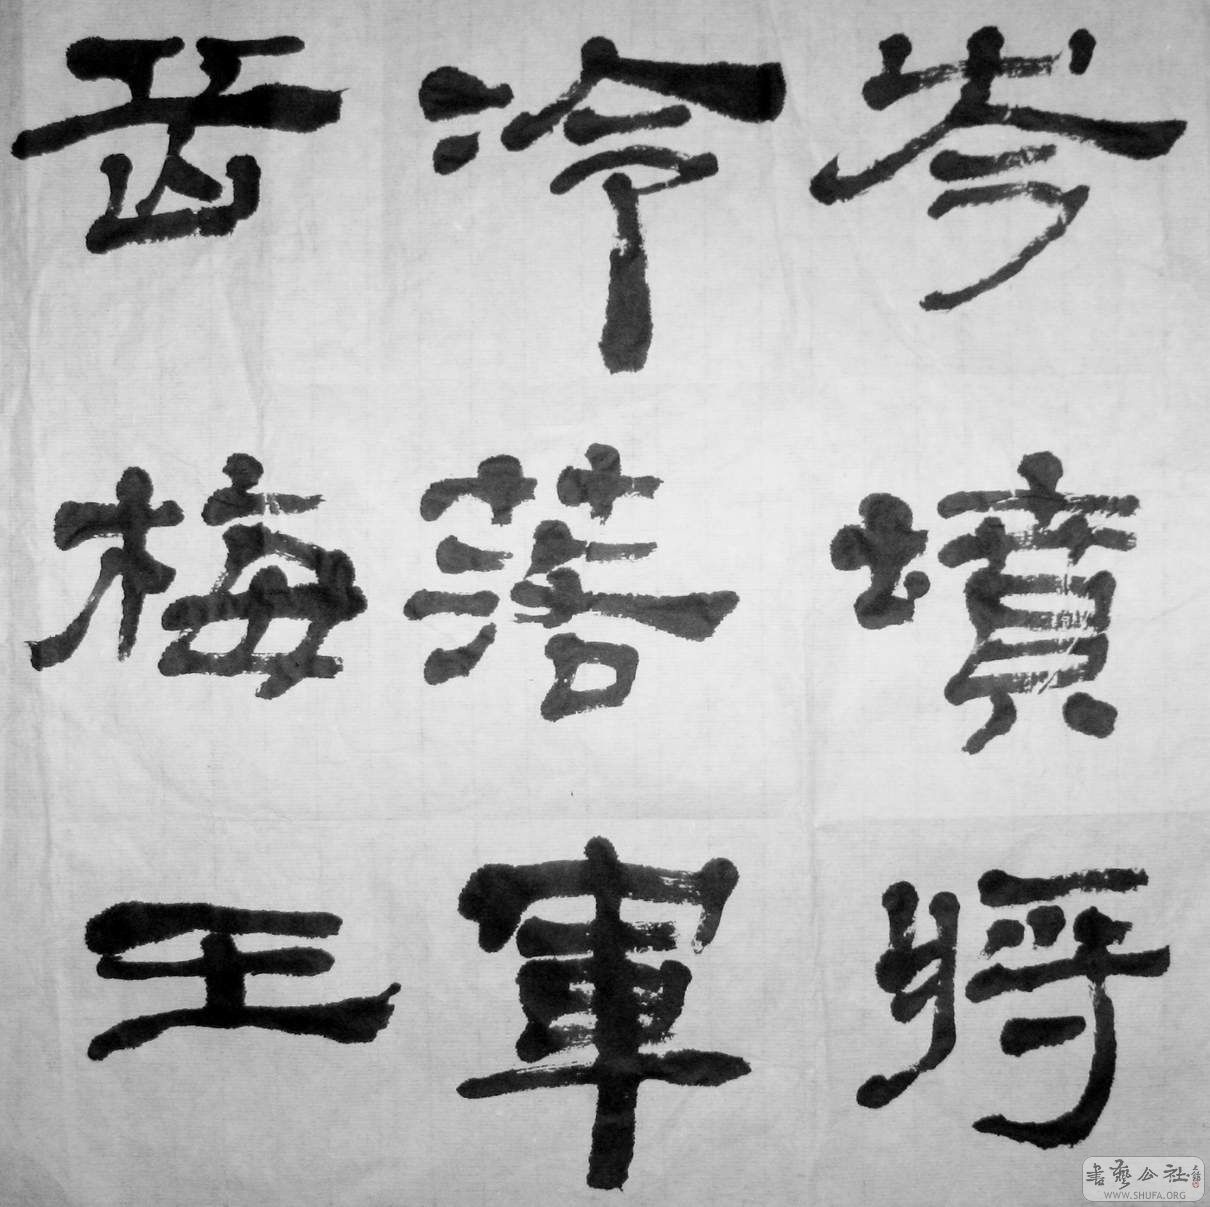 岑墳將
冷落軍
岳梅王
書藝公社
WWW.SHUFA.ORG